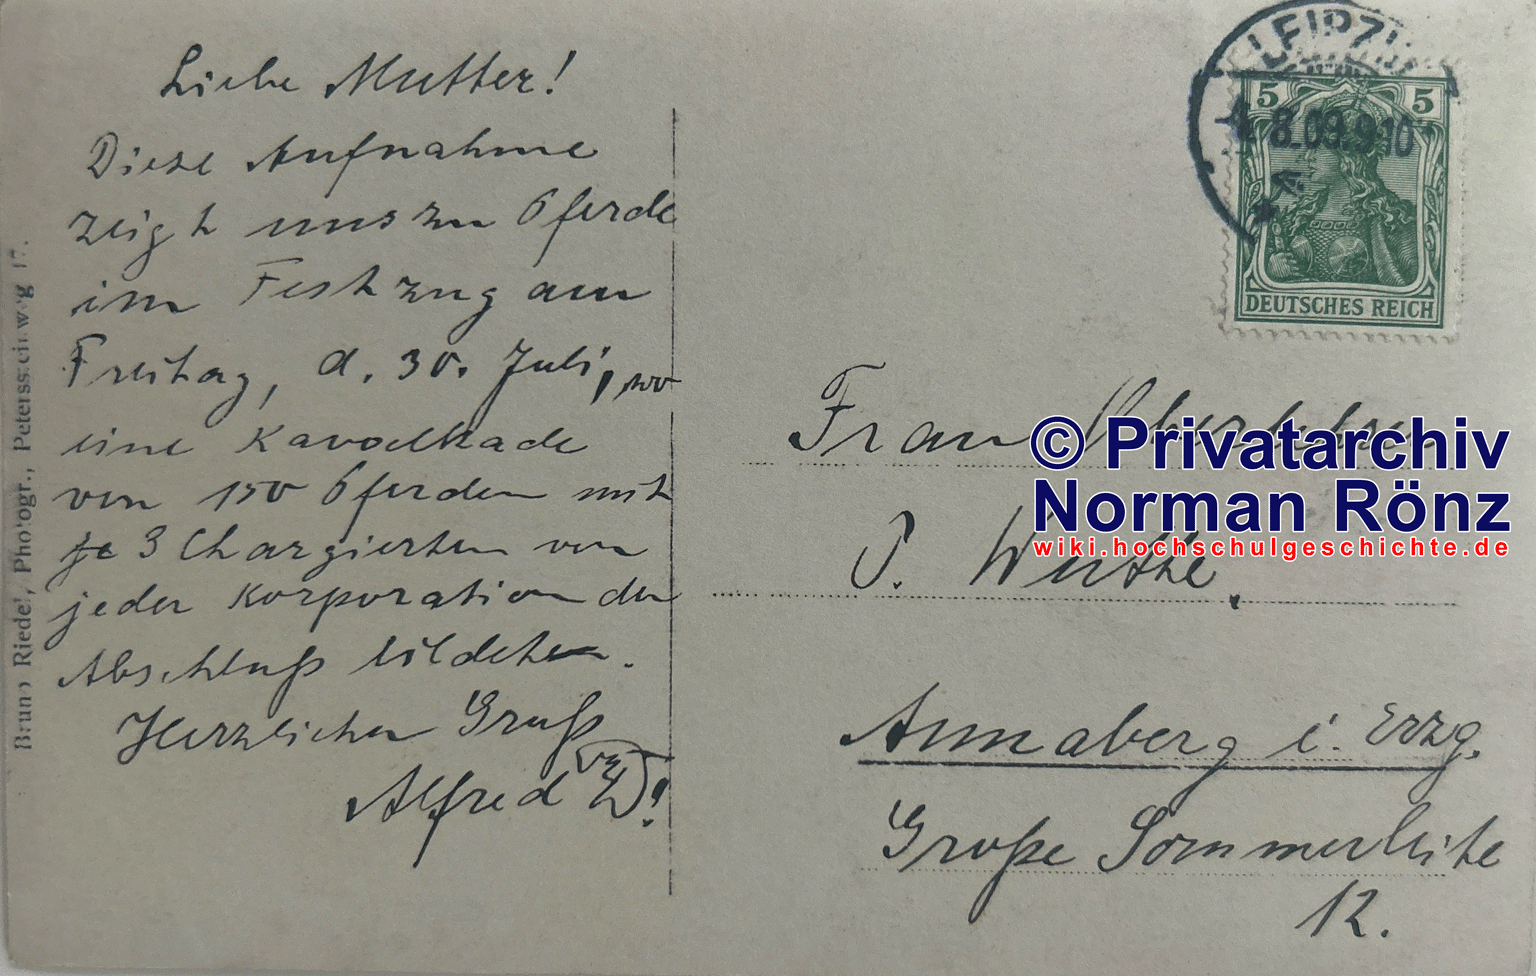 Liebe Mutter!
Diese Aufnahme
zeigt unsere Pferde
im Festzug am
Freitag, d. 30. Juli, wo
eine Kavalkade
von 150 Pferden mit
je 3 Chargierten von
jeder Korporation den
Abschluß bildeten.
Herzlichen Gruß
Alfred
Bruno Riedel, Photogr., Peterssteinweg 17.
LEIPZIG
4. 8.09.9-10
5 5
DEUTSCHES REICH
Frau
P. Wuthe.
Annaberg i. Erzg.
Große Sommerleite
12.
© Privatarchiv
Norman Rönz
wiki.hochschulgeschichte.de